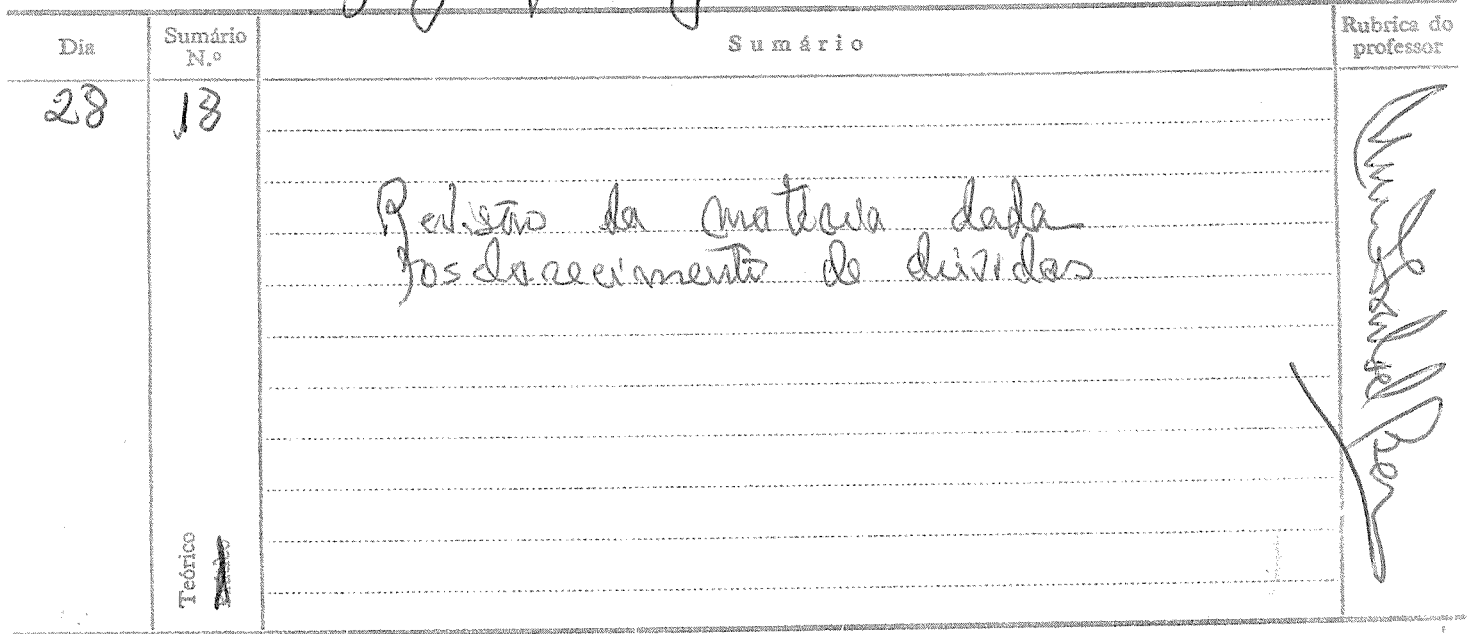 Dia
Sumário
N.º
Sumário
Rubrica do
professor
28
13
Revisão da matéria dada
esclarecimento de dúvidas
Teórico